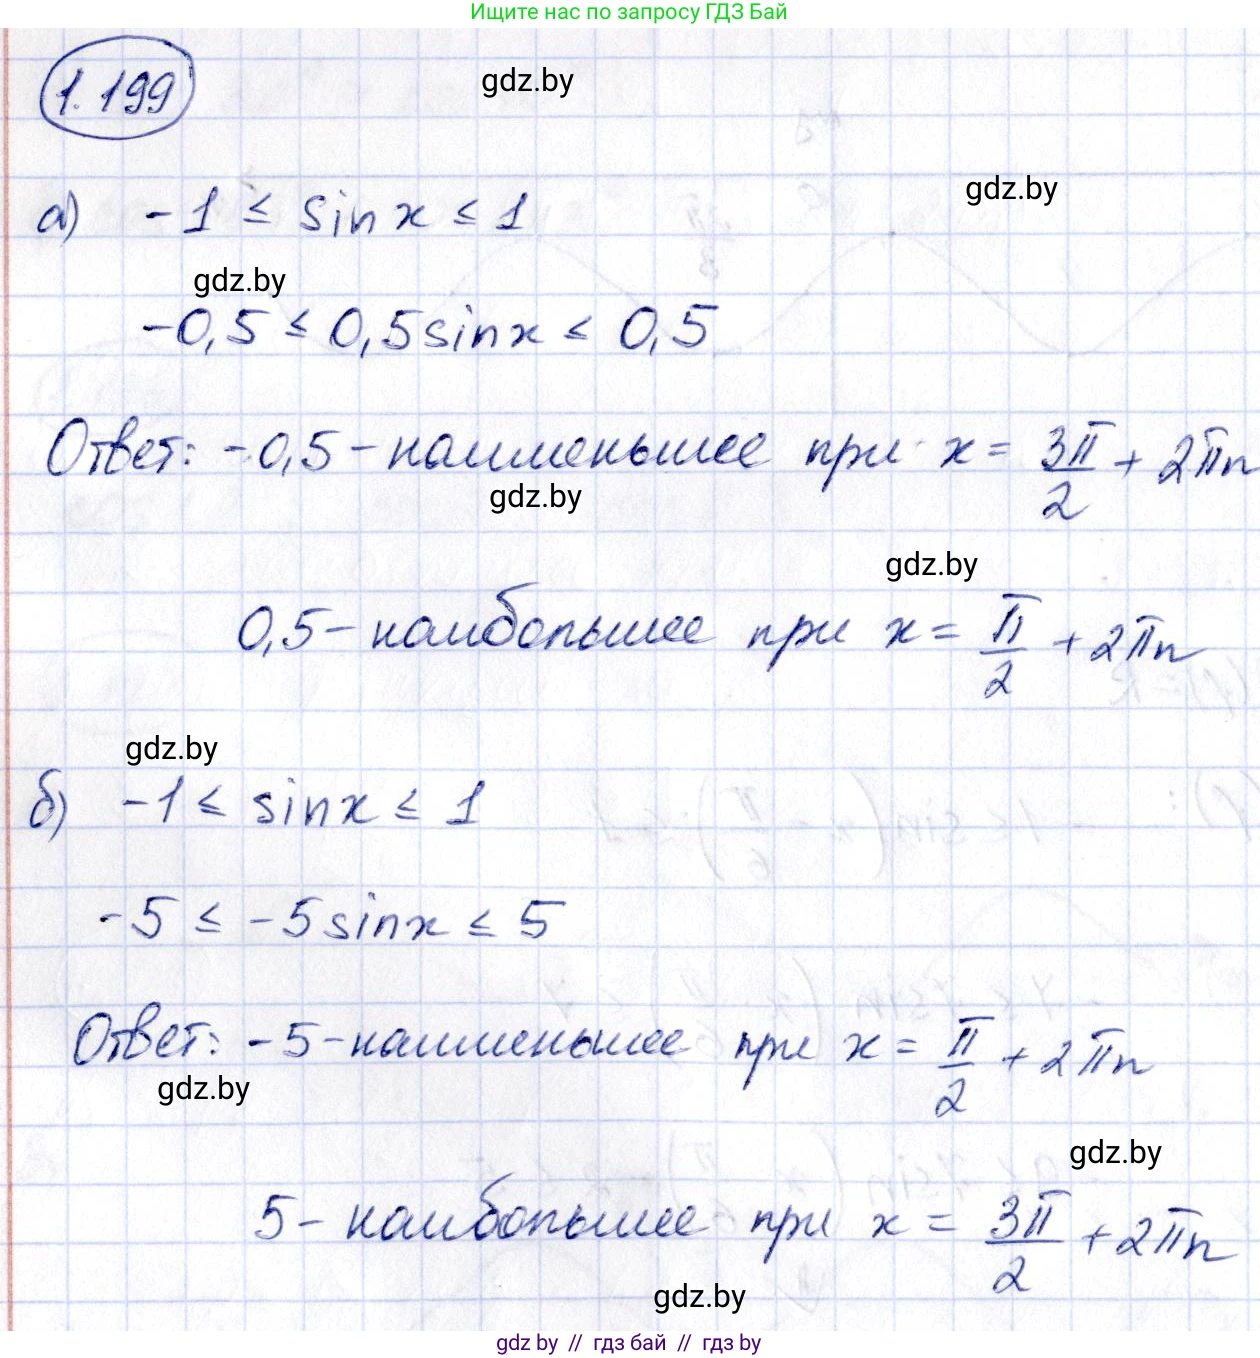 Ищите нас по запросу ГДЗ Бай
1.199
gdz.by
gdz.by
а) -1 ≤ sin x ≤ 1
gdz.by
-0,5 ≤ 0,5 sin x ≤ 0,5
Ответ: -0,5 - наименьшее при x = 3π/2 + 2πn
gdz.by
gdz.by
0,5 - наибольшее при x = π/2 + 2πn
gdz.by
б) -1 ≤ sin x ≤ 1
-5 ≤ -5 sin x ≤ 5
Ответ: -5 - наименьшее при x = π/2 + 2πn
gdz.by
gdz.by
5 - наибольшее при x = 3π/2 + 2πn
gdz.by
gdz by // гдз бай // гдз by